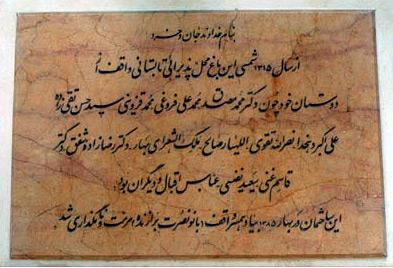 بنام خداوند جان و خرد
از سال ۱۳۱۵ شمسی این باغ محل پذیرائی تابستانی واقف از
دوستان خود چون دکتر محمد مصدق، محمد علی فروغی، محمد قزوینی، سید حسن تقی زاده
علی اکبر دهخدا، نصرالله تقوی، اللهیار صالح، ملک الشعرای بهار، دکتر رضازاده شفق، دکتر
قاسم غنی، سعید نفیسی، عباس اقبال و دیگران بود.
این ساختمان در بهار ۱۳۸۵ بیاد همسر واقف (بانو نصرت برازنده) مرمت و نگهداری شد